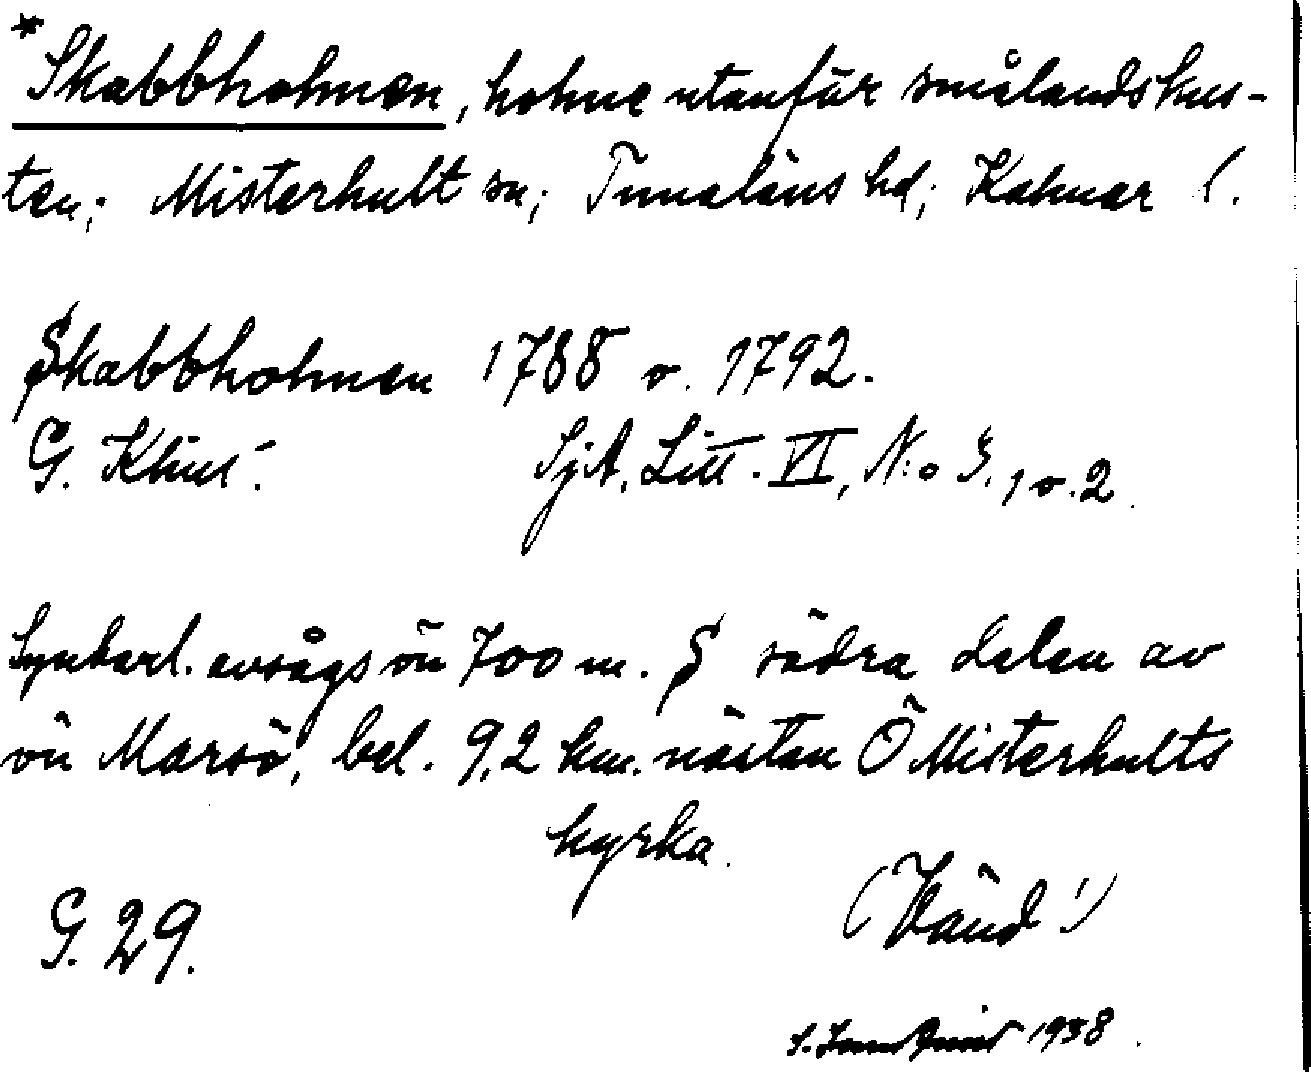 *Skabbholmen, holme utanför smålandskus-
ten; Misterhult sn; Tunaläns hd; Kalmar l.
Skabbholmen 1788 o. 1792.
G. Klint. SjA. Litt. VI, N:o 3, 1 o. 2.
Synbarl. avsågs ön 700 m. S södra delen av
ön Marsö, bel. 9,2 km. nästan Ö Misterhults
kyrka.
(Vänd!)
G. 29.
1938.